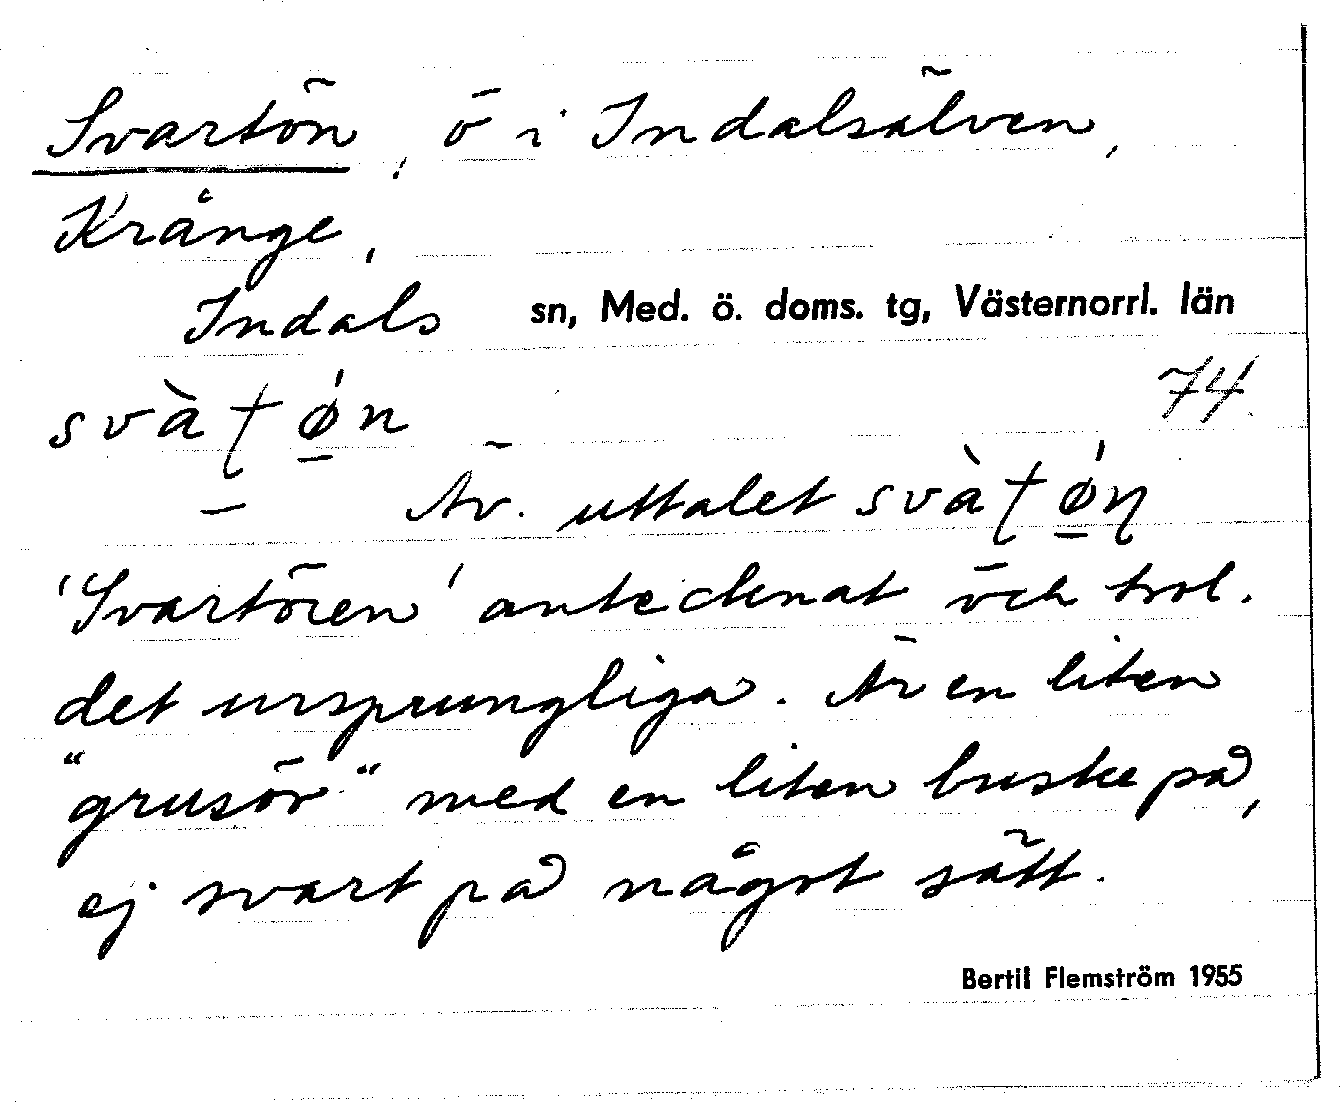 Svartön, ö i Indalsälven,
Krånge,
Indals sn, Med. ö. doms. tg, Västernorrl. län
svàʈǿ̲n 74.
Äv. uttalet svàʈǿ̲ɳ
'Svartören' antecknat och trol.
det ursprungliga. Är en liten
"grusör" med en liten buske på,
ej svart på något sätt.
Bertil Flemström 1955